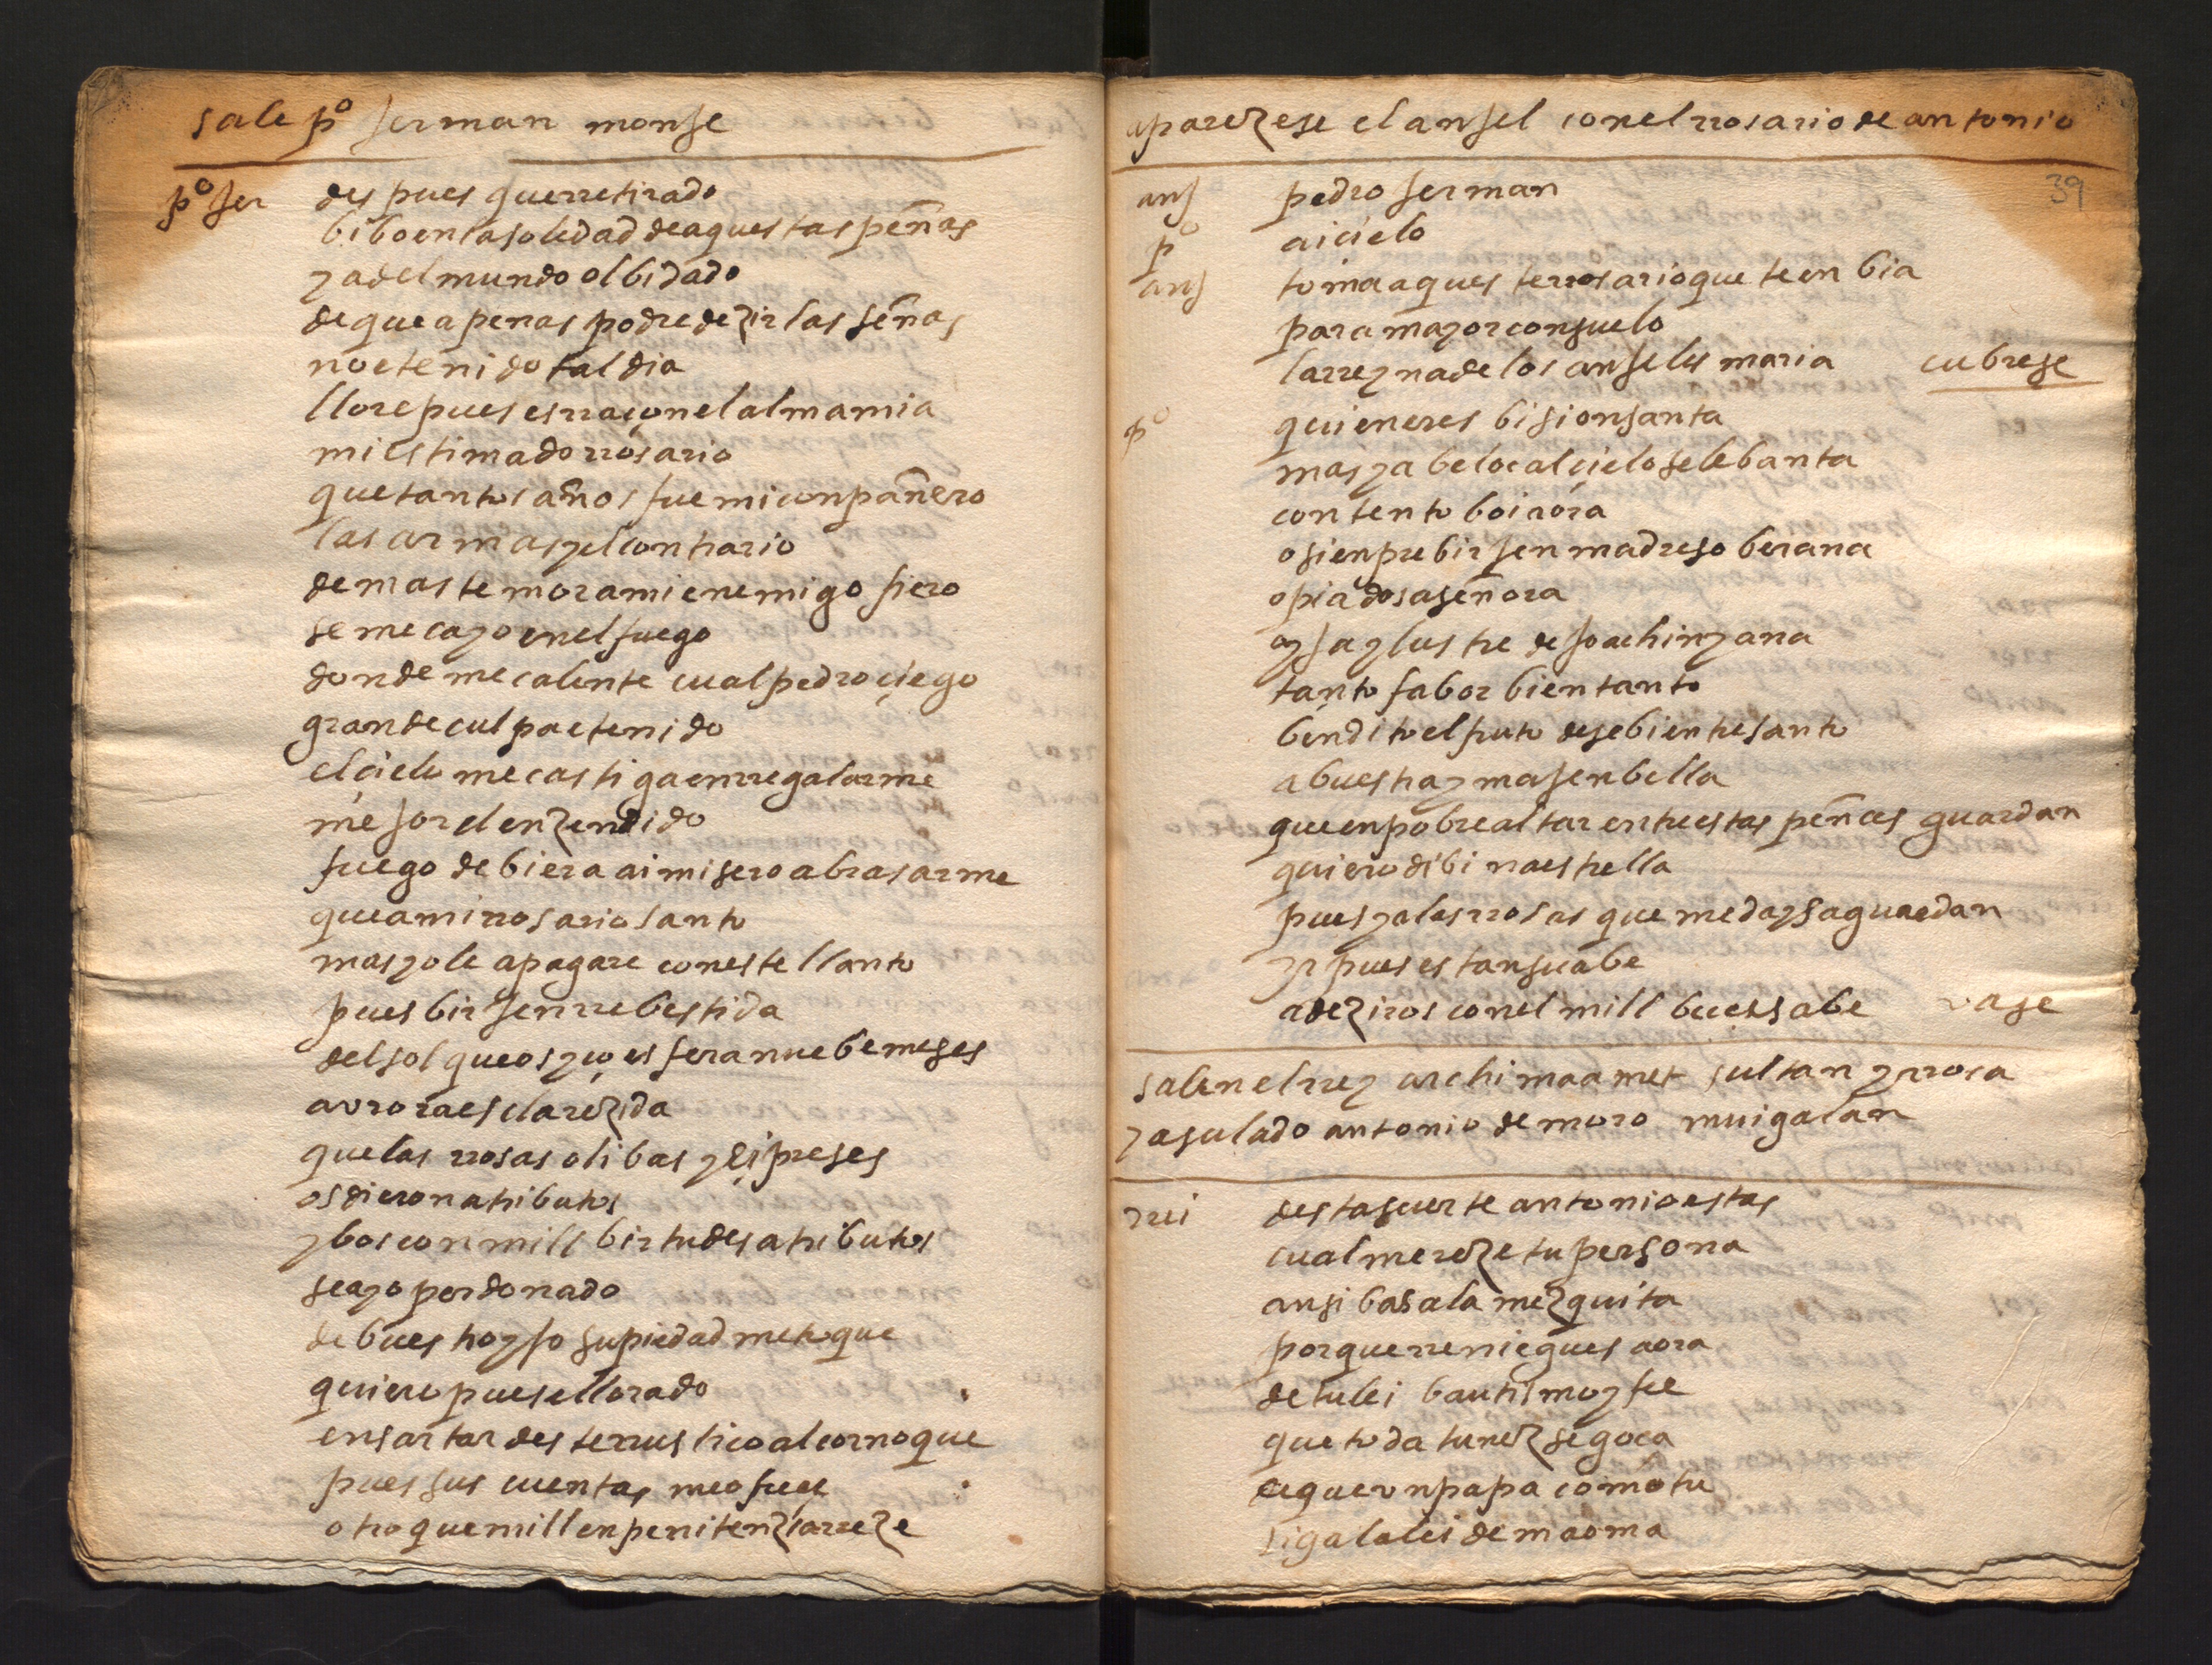 sale pº jerman monje
pº jer des pues querretirado
biboenlasoledad deaquestas peñas
yadelmundo olbidado
dequeapenas podredezir las señas
noetenido tal dia
llorepues esrraçonelalmamia
miestimadorrosario
quetantos años fuemiconpañero
las armas yelcontrario
demastemoramienemigo fiero
semecayoenelfuego
dondemecalente cualpedrociego
grandeculpaetenido
elçielo mecastigaenrregalarme
mejorelenzendido
fuego debiera aimisero abrasarme
queamirrosariosanto
masyole apagare coneste llanto
pues birjenrrebestida
delsol queosyço esferanuebemeses
auroraesclarezida
quelas rrosas olibas yçipreses
osdieronatributos
ybosconmill birtudesatributos
seayo perdonado
debuestroyjo supiedad metoque
quieropuesellorado
ensartardesterrusticoalcornoque
puessus cuentas meofreze
otroquemill enpenitenziarreze
aparezese elanjel conelrrosariodeantonio
39
anj pedro jerman
pº aicielo
anj tomaaquesterrosarioqueteenbia
paramayorconsuelo
larreynadelos anjeles maria cubrese
pº quieneres bisionsanta
masya belocalçieloselebanta
contento boiaora
osienprebirjenmadresoberana
opiadosaseñora
oyjaylustre dejoachinyana
tanto fabor bientanto
benditoelfruto desebientresanto
abuestraymajenbella
queenpobrealtarentreestas peñas guardan
quierodibinaestrella
puesyalasrrosas quemedaysaguardan
yr pues es tansuabe
adeziros conel mill bezesabe vase
salenelrrey archimaamet sultan yrrosa
yasulado antonio demoro muigalan
rrei destasuerte antonioestas
cualmerezetupersona
ansi basala mezquita
porquerreniegues aora
detulei bautismoyfee
quetodatunezsegoça
aquevnpapa comotu
sigalalei demaoma